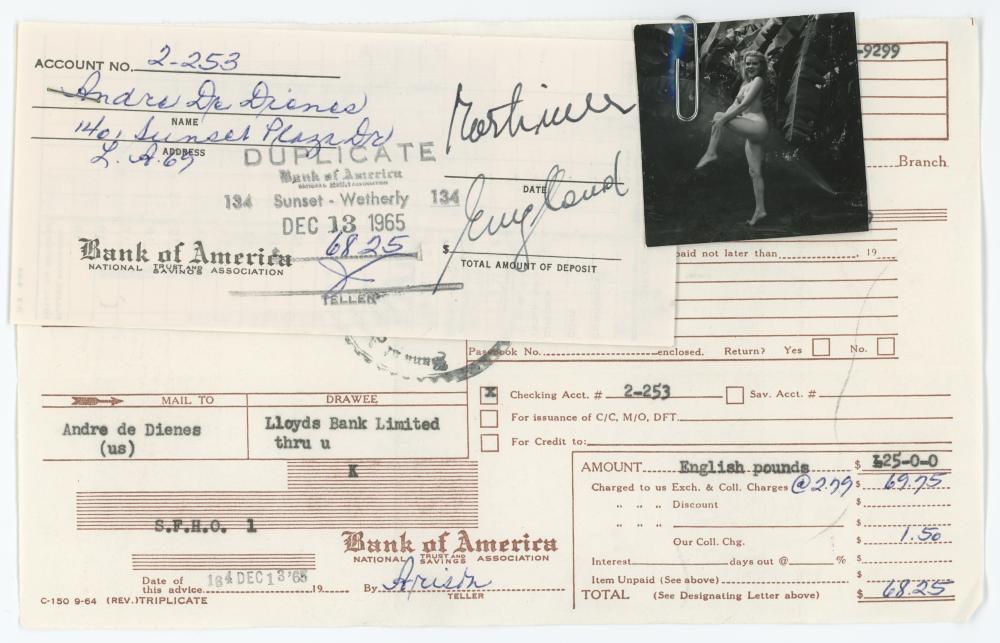 ACCOUNT NO. 2-253
Andre De Dienes
NAME
1401 Sunset Plaza Dr
ADDRESS
L.A. 69
DUPLICATE
Bank of America
NATIONAL TRUST AND SAVINGS ASSOCIATION
134 Sunset - Wetherly 134
DEC 13 1965
68.25
Bank of America
NATIONAL TRUST AND SAVINGS ASSOCIATION
TELLER
Mortimer
DATE
England
$
TOTAL AMOUNT OF DEPOSIT
-9299
Branch
paid not later than , 19
Passbook No. enclosed. Return? Yes No.
MAIL TO
DRAWEE
Andre de Dienes
(us)
Lloyds Bank Limited
thru u
K
S.F.H.O. 1
X Checking Acct. # 2-253 Sav. Acct. #
For issuance of C/C, M/O, DFT.
For Credit to:
AMOUNT English pounds $ £25-0-0
Charged to us Exch. & Coll. Charges @2.79 $ 69.75
" " " Discount $
" " " $
Our Coll. Chg. $ 1.50
Interest days out @ % $
Item Unpaid (See above) $
TOTAL (See Designating Letter above) $ 68.25
Bank of America
NATIONAL TRUST AND SAVINGS ASSOCIATION
Date of
this advice 184 DEC 13 '65 19
By
TELLER
C-150 9-64 (REV.) TRIPLICATE